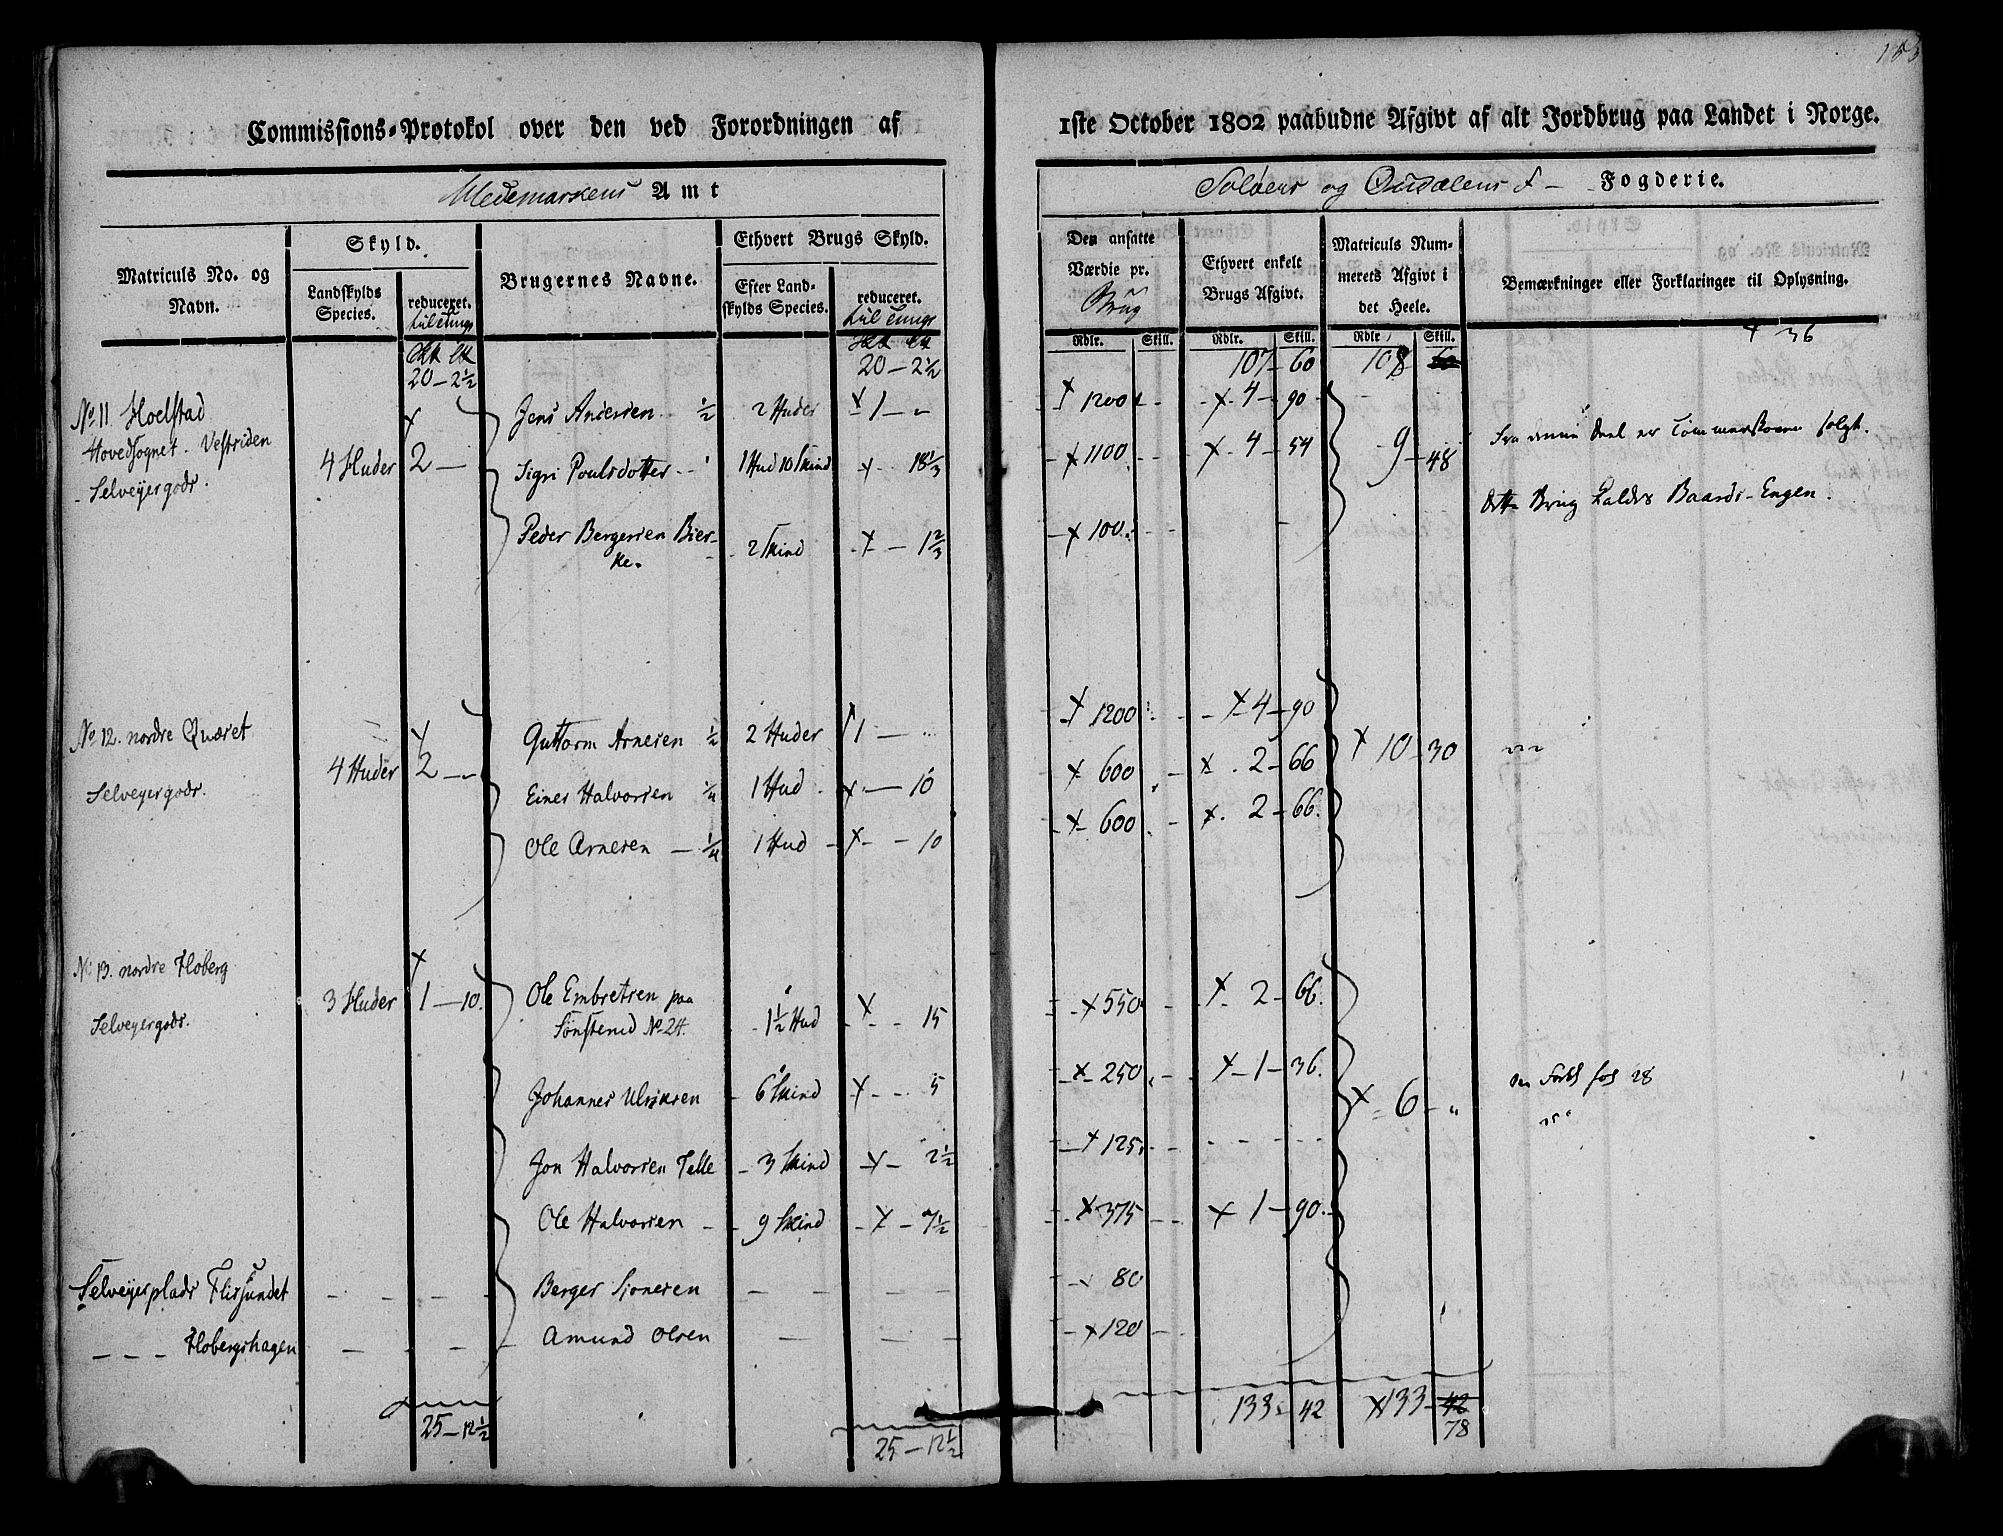 155
Commissions-Protokol over den ved Forordningen af 1ste October 1802 paabudne Afgivt af alt Jordbrug paa Landet i Norge.
Hedemarkens Amt
Soløers og Oudalens F- Fogderie.
Matriculs No. og Navn.
Skyld.
Landskylds Species.
reduceret.
Brugernes Navne.
Ethvert Brugs Skyld.
Efter Landskylds Species.
reduceret.
Den ansatte Værdie pr. Brug
Rdlr. Skill.
Ethvert enkelt Brugs Afgivt.
Rdlr. Skill.
Matriculs Nummerets Afgivt i det Heele.
Rdlr. Skill.
Bemærkninger eller Forklaringer til Oplysning.
20 - 2½ 20 - 2½ 107 - 60 108 60 + 36
No 11 Hoelstad Jens Andersen ½ 2 Huder x 1 - " x 1200 x 4 - 90
Hovedsognet. Vestsiden
Selveyergods. 4 Huder x 2 - Sigri Poulsdotter 1 Hud 10 Skind x - 18⅓ x 1100 x 4 - 54 9 - 48 Fra denne Deel er Tømmerskoven solgt.
Peder Bergersen Bierke. 2 Skind x - 1⅔ x 100 Dette Brug kaldes Baards-Engen.
No 12. nordre Qværet Guttorm Arnesen ½ 2 Huder x 1 - x 1200 x 4 - 90
Selveyergods. 4 Huder x 2 - " Einer Halvorsen ¼ 1 Hud x - 10 x 600 x 2 - 66 x 10 - 30
Ole Arnesen - ¼ 1 Hud x - 10 x 600 x 2 - 66
No 13. nordre Hoberg
Selveyergods. 3 Huder x 1 - 10. Ole Embretsen paa Sønsterud No 24. 1½ Hud x - 15 x 550 x 2 - 66.
Johannes Ulriksen 6 Skind x - 5 x 250 x 1 - 36. x 6 - "
Jon Halvorsen Telle 3 Skind x - 2½ x 125
Ole Halvorsen 9 Skind x - 7½ x 375 x 1 - 90.
Selveyerplads Flissundet Berger Simensen x 80
- - - Hobergshagen Amund Olsen x 120
25 - 12½ 25 - 12½ 133 - 42 x 133 - 42
78